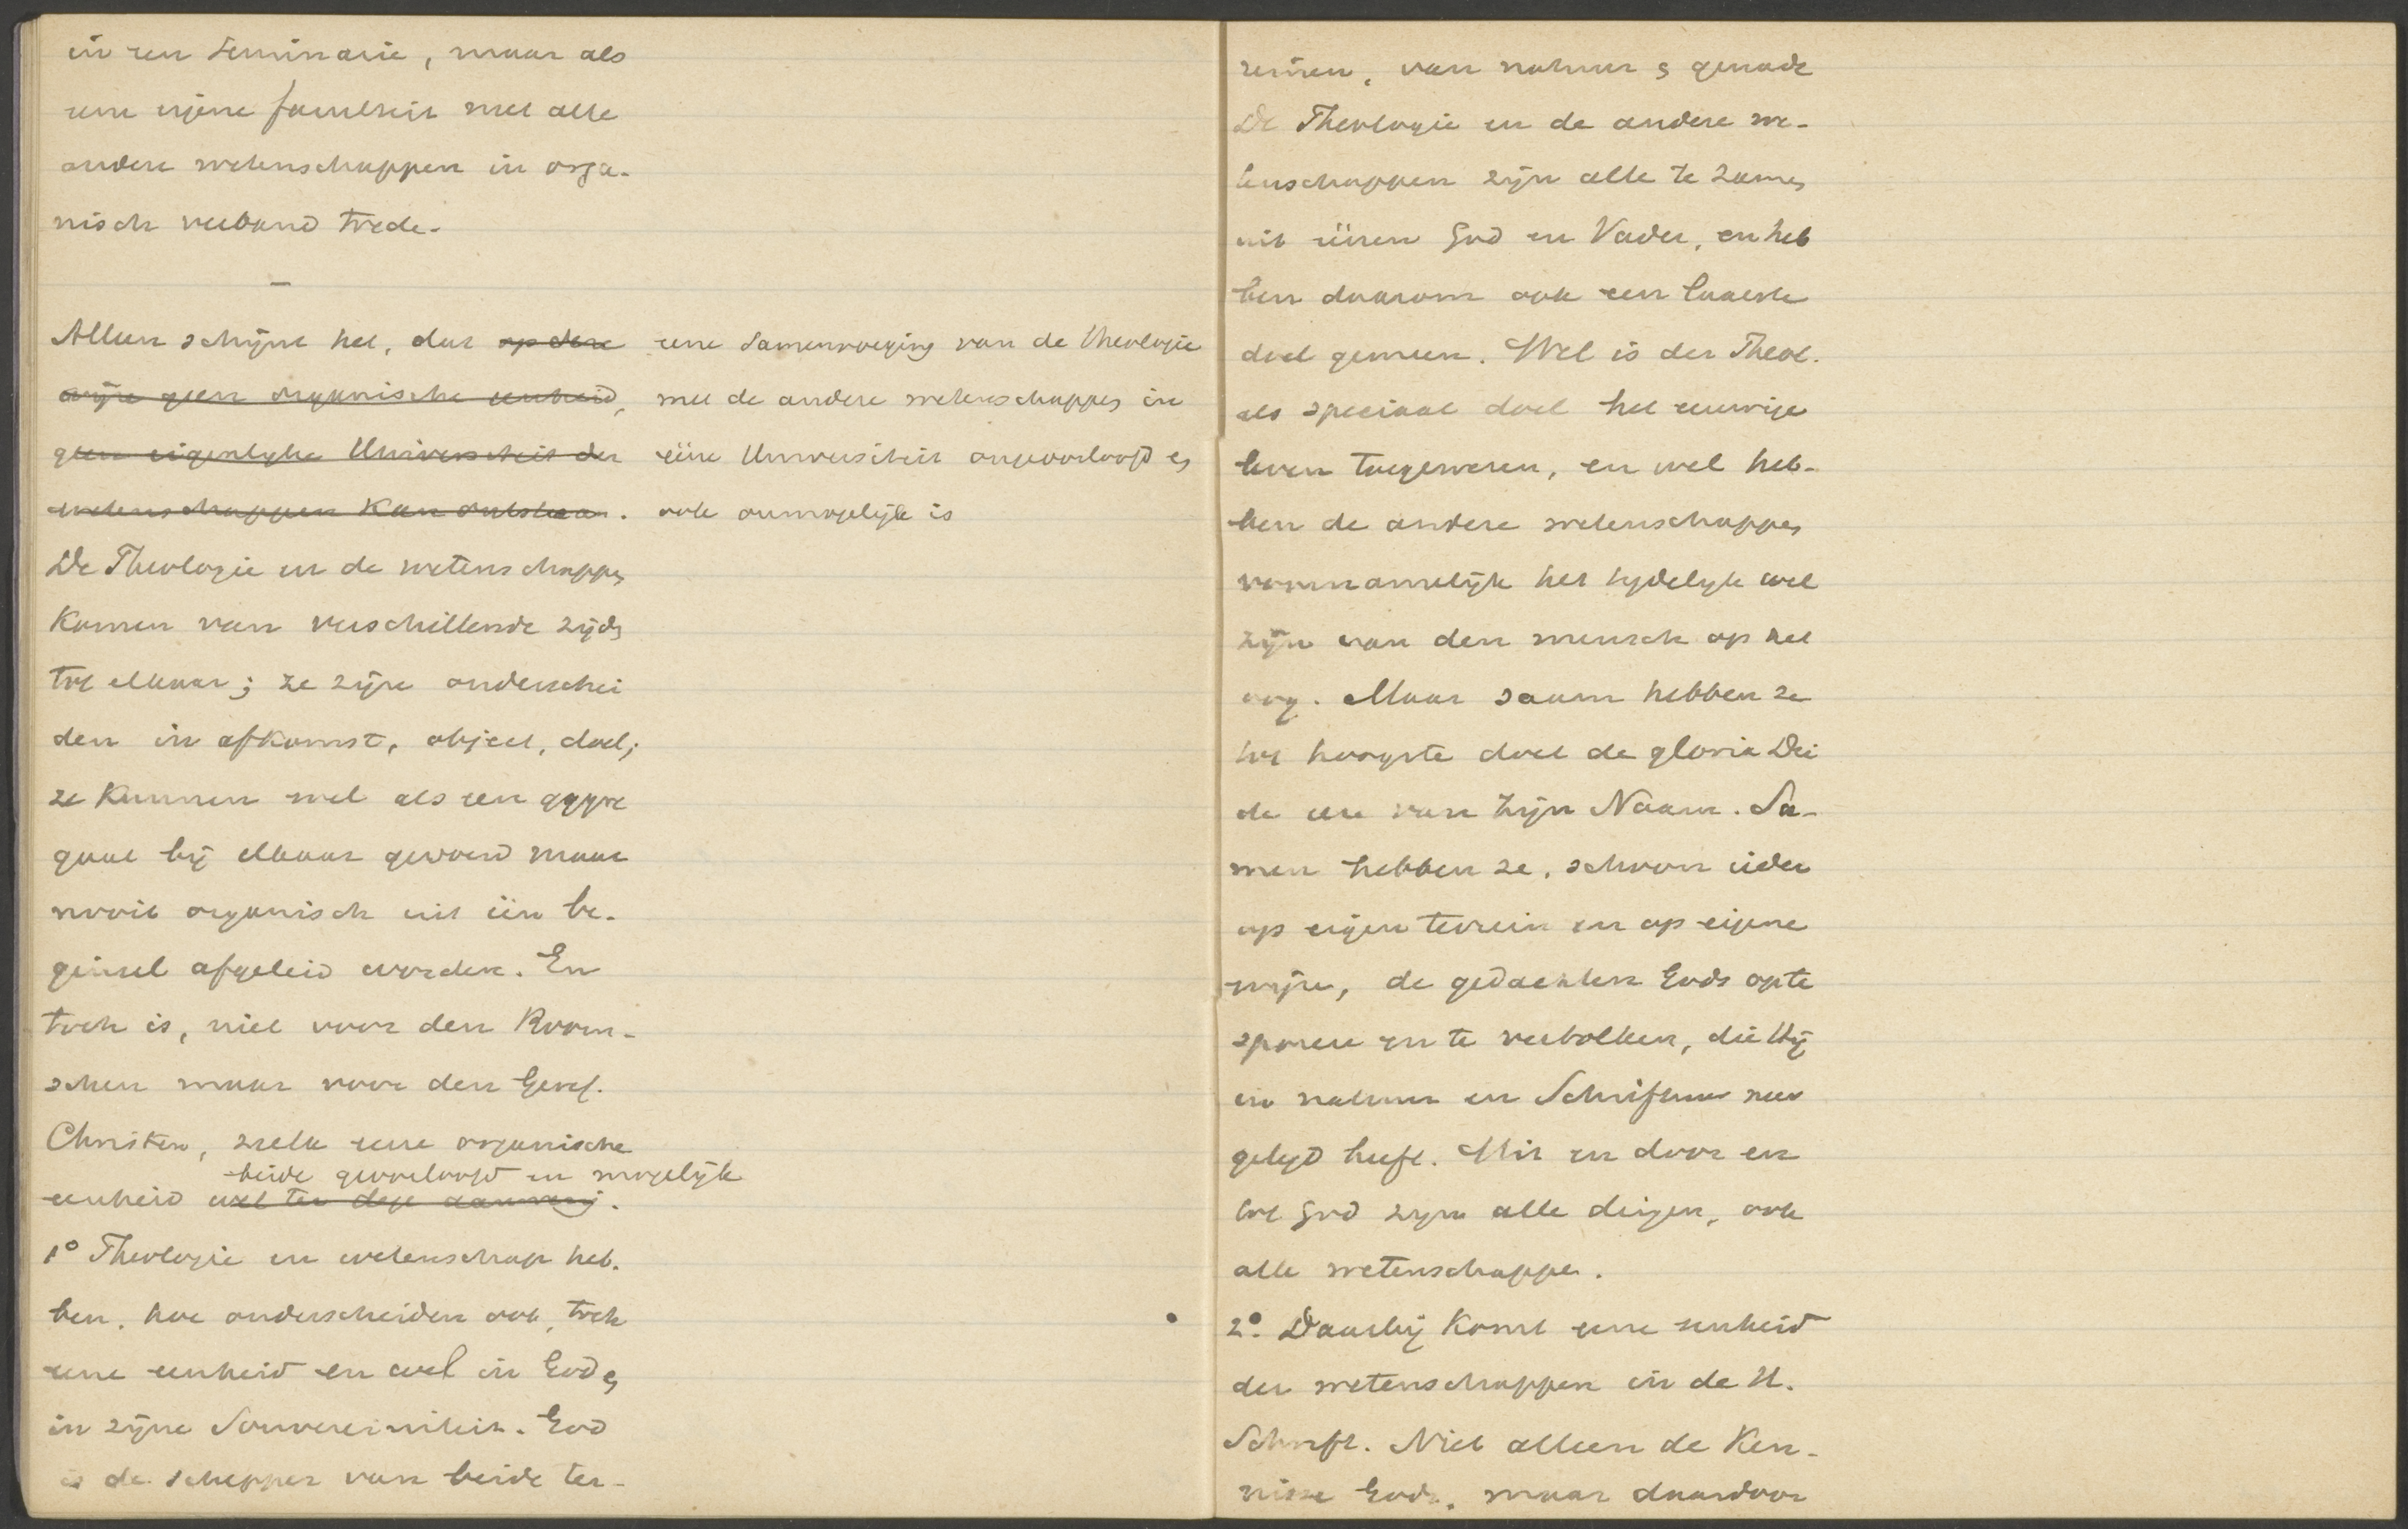 in een Seminarie, maar als
eene eigene faculteit met alle
andere wetenschappen in orga-
nisch verband trede.
—
Alleen schijnt het, dat op deze
wijze geen organische eenheid,
geen eigenlyke Universiteit der
wetenschappen kan ontstaan.
eene Samenvoeging van de theologie
met de andere wetenschappen in
ééne Universiteit ongeoorloofd en
ook onmogelijk is
De Theologie en de wetenschappen
komen van verschillende zijden
tot elkaar; ze zijn onderschei
den in afkomst, object, doel;
ze kunnen wel als een aggre
gaat bij elkaar gevoegd maar
nooit organisch uit één be-
ginsel afgeleid worden. En
toch is, niet voor den Room-
schen maar voor den Geref.
Christen, zulk eene organische
beide geoorloofd en mogelijk
eenheid wel ter dege aanwezig.
1° Theologie en wetenschap heb-
ben, hoe onderscheiden ook, toch
eene eenheid en wel in God en
in zijne Souvereiniteit. God
is de schepper van beide ter-
reinen, van natuur en genade
De Theologie en de andere we-
tenschappen zijn alle te zamen
uit éénen God en Vader, en heb
ben daarom ook een laatste
doel gemeen. Wel is der Theol.
als speciaal doel het eeuwige
leven toegewezen, en wel heb-
ben de andere wetenschappen
voornamelijk het tydelyk wel
zijn van den mensch op het
oog. Maar saam hebben ze
tot hoogste doel de gloria Dei
de eer van Zijn Naam. Sa-
men hebben ze, schoon ieder
op eigen terrein en op eigene
wijze, de gedachten Gods op te
sporen en te vertolken, die Hij
in natuur en Schriftuur neer
gelegd heeft. Uit en door en
tot God zyn alle dingen, ook
alle wetenschappen.
2°. Daarbij komt eene eenheid
der wetenschappen in de H.
Schrift. Niet alleen de Ken-
nisse Gods, maar daardoor